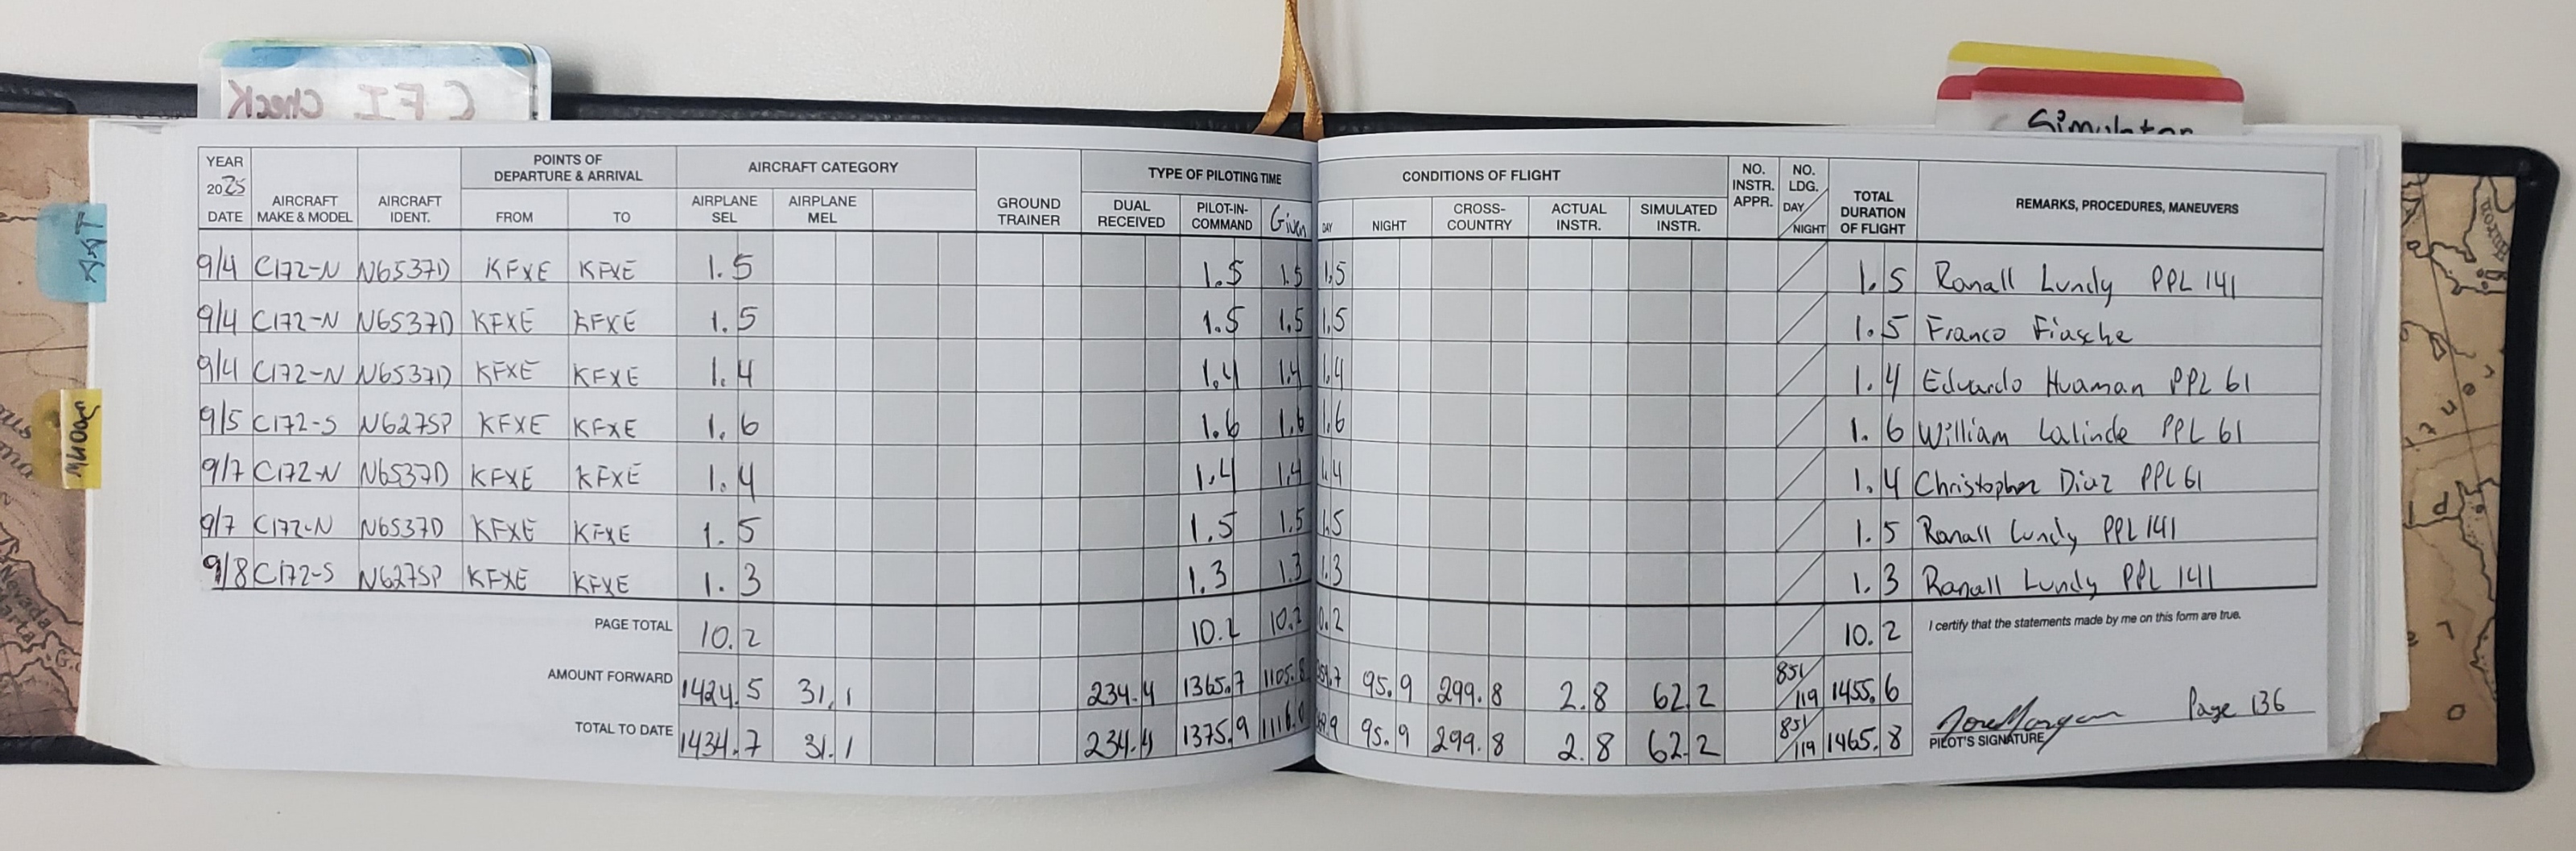 CFI Check
Simulator
AST
M4100gs
YEAR 2025 DATE AIRCRAFT MAKE & MODEL AIRCRAFT IDENT. POINTS OF DEPARTURE & ARRIVAL FROM TO AIRCRAFT CATEGORY AIRPLANE SEL AIRPLANE MEL GROUND TRAINER TYPE OF PILOTING TIME DUAL RECEIVED PILOT-IN-COMMAND Given DAY CONDITIONS OF FLIGHT NIGHT CROSS-COUNTRY ACTUAL INSTR. SIMULATED INSTR. NO. INSTR. APPR. NO. LDG. DAY NIGHT TOTAL DURATION OF FLIGHT REMARKS, PROCEDURES, MANEUVERS
9/4 C172-N N6537D KFXE KFXE 1.5 1.5 1.5 1.5 1.5 Ranall Lundy PPL 141
9/4 C172-N N6537D KFXE KFXE 1.5 1.5 1.5 1.5 1.5 Franco Fiasche
9/4 C172-N N6537D KFXE KFXE 1.4 1.4 1.4 1.4 1.4 Eduardo Huaman PPL 61
9/5 C172-S N627SP KFXE KFXE 1.6 1.6 1.6 1.6 1.6 William Lalinde PPL 61
9/7 C172-N N6537D KFXE KFXE 1.4 1.4 1.4 1.4 1.4 Christopher Diaz PPL 61
9/7 C172-N N6537D KFXE KFXE 1.5 1.5 1.5 1.5 1.5 Ranall Lundy PPL 141
9/8 C172-S N627SP KFXE KFXE 1.3 1.3 1.3 1.3 1.3 Ranall Lundy PPL 141
PAGE TOTAL 10.2 10.2 10.2 0.2 10.2 I certify that the statements made by me on this form are true.
AMOUNT FORWARD 1424.5 31.1 234.4 1365.7 1105.8 95.9 299.8 2.8 62.2 851/119 1455.6
TOTAL TO DATE 1434.7 31.1 234.4 1375.9 1116.0 95.9 299.8 2.8 62.2 851/119 1465.8 PILOT'S SIGNATURE Page 136